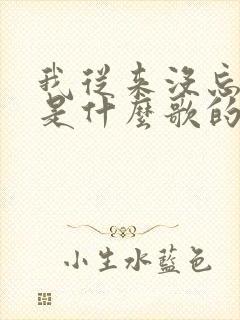 我從來沒忘
是什麼歌的
小生水藍色